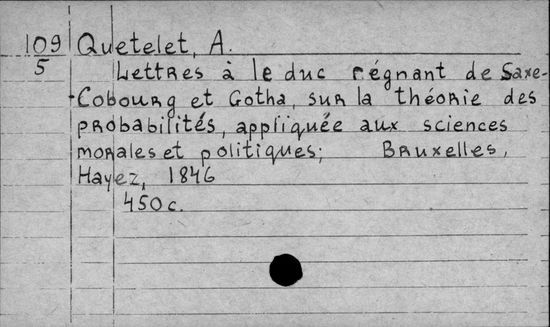 109 Quetelet, A.
5 Lettres à le duc régnant de Saxe-
-Cobourg et Gotha, sur la théorie des
probabilités, appliquée aux sciences
morales et politiques; Bruxelles,
Hayez, 1846
450 c.